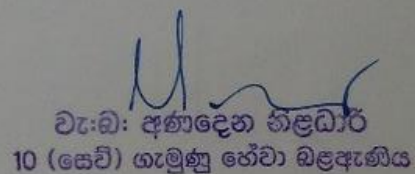 වැ:බ: අණදෙන නිළධාරි
10 (සෙව්) ගැමුණු හේවා බළඇණිය